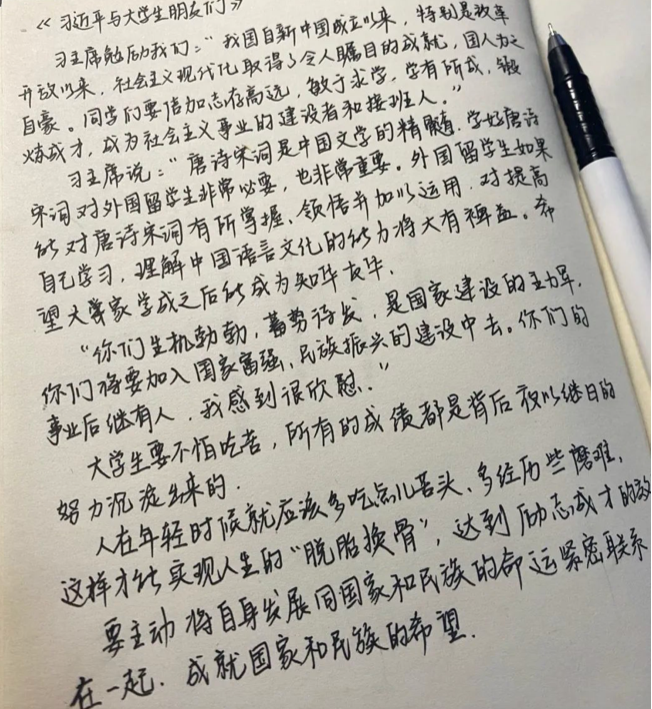 《习近平与大学生朋友们》
习主席勉励我们：“我国自新中国成立以来，特别是改革
开放以来，社会主义现代化取得了令人瞩目的成就，国人为之
自豪。同学们要倍加志存高远，敏于求学，学有所成，锻
炼成才，成为社会主义事业的建设者和接班人。”
习主席说：“唐诗宋词是中国文学的精髓，学好唐诗
宋词对外国留学生非常必要，也非常重要。外国留学生如果
能对唐诗宋词有所掌握、领悟并加以运用，对提高
自己学习，理解中国语言文化的能力将大有裨益。希
望大家学成之后能成为知华友华．
“你们生机勃勃，蓄势待发，是国家建设的主力军，
你们将要加入国家富强、民族振兴的建设中去。你们的
事业后继有人，我感到很欣慰．”
大学生要不怕吃苦，所有的成绩都是背后夜以继日的
努力沉淀出来的．
人在年轻时候就应该多吃点儿苦头、多经历些磨难，
这样才能实现人生的“脱胎换骨”，达到励志成才的效
要主动将自身发展同国家和民族的命运紧密联系
在一起．成就国家和民族的希望．